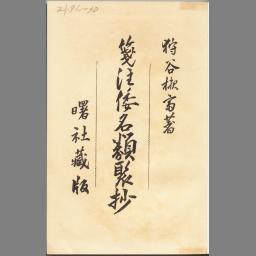 狩谷棭斎著
箋注倭名類聚抄
曙社藏版